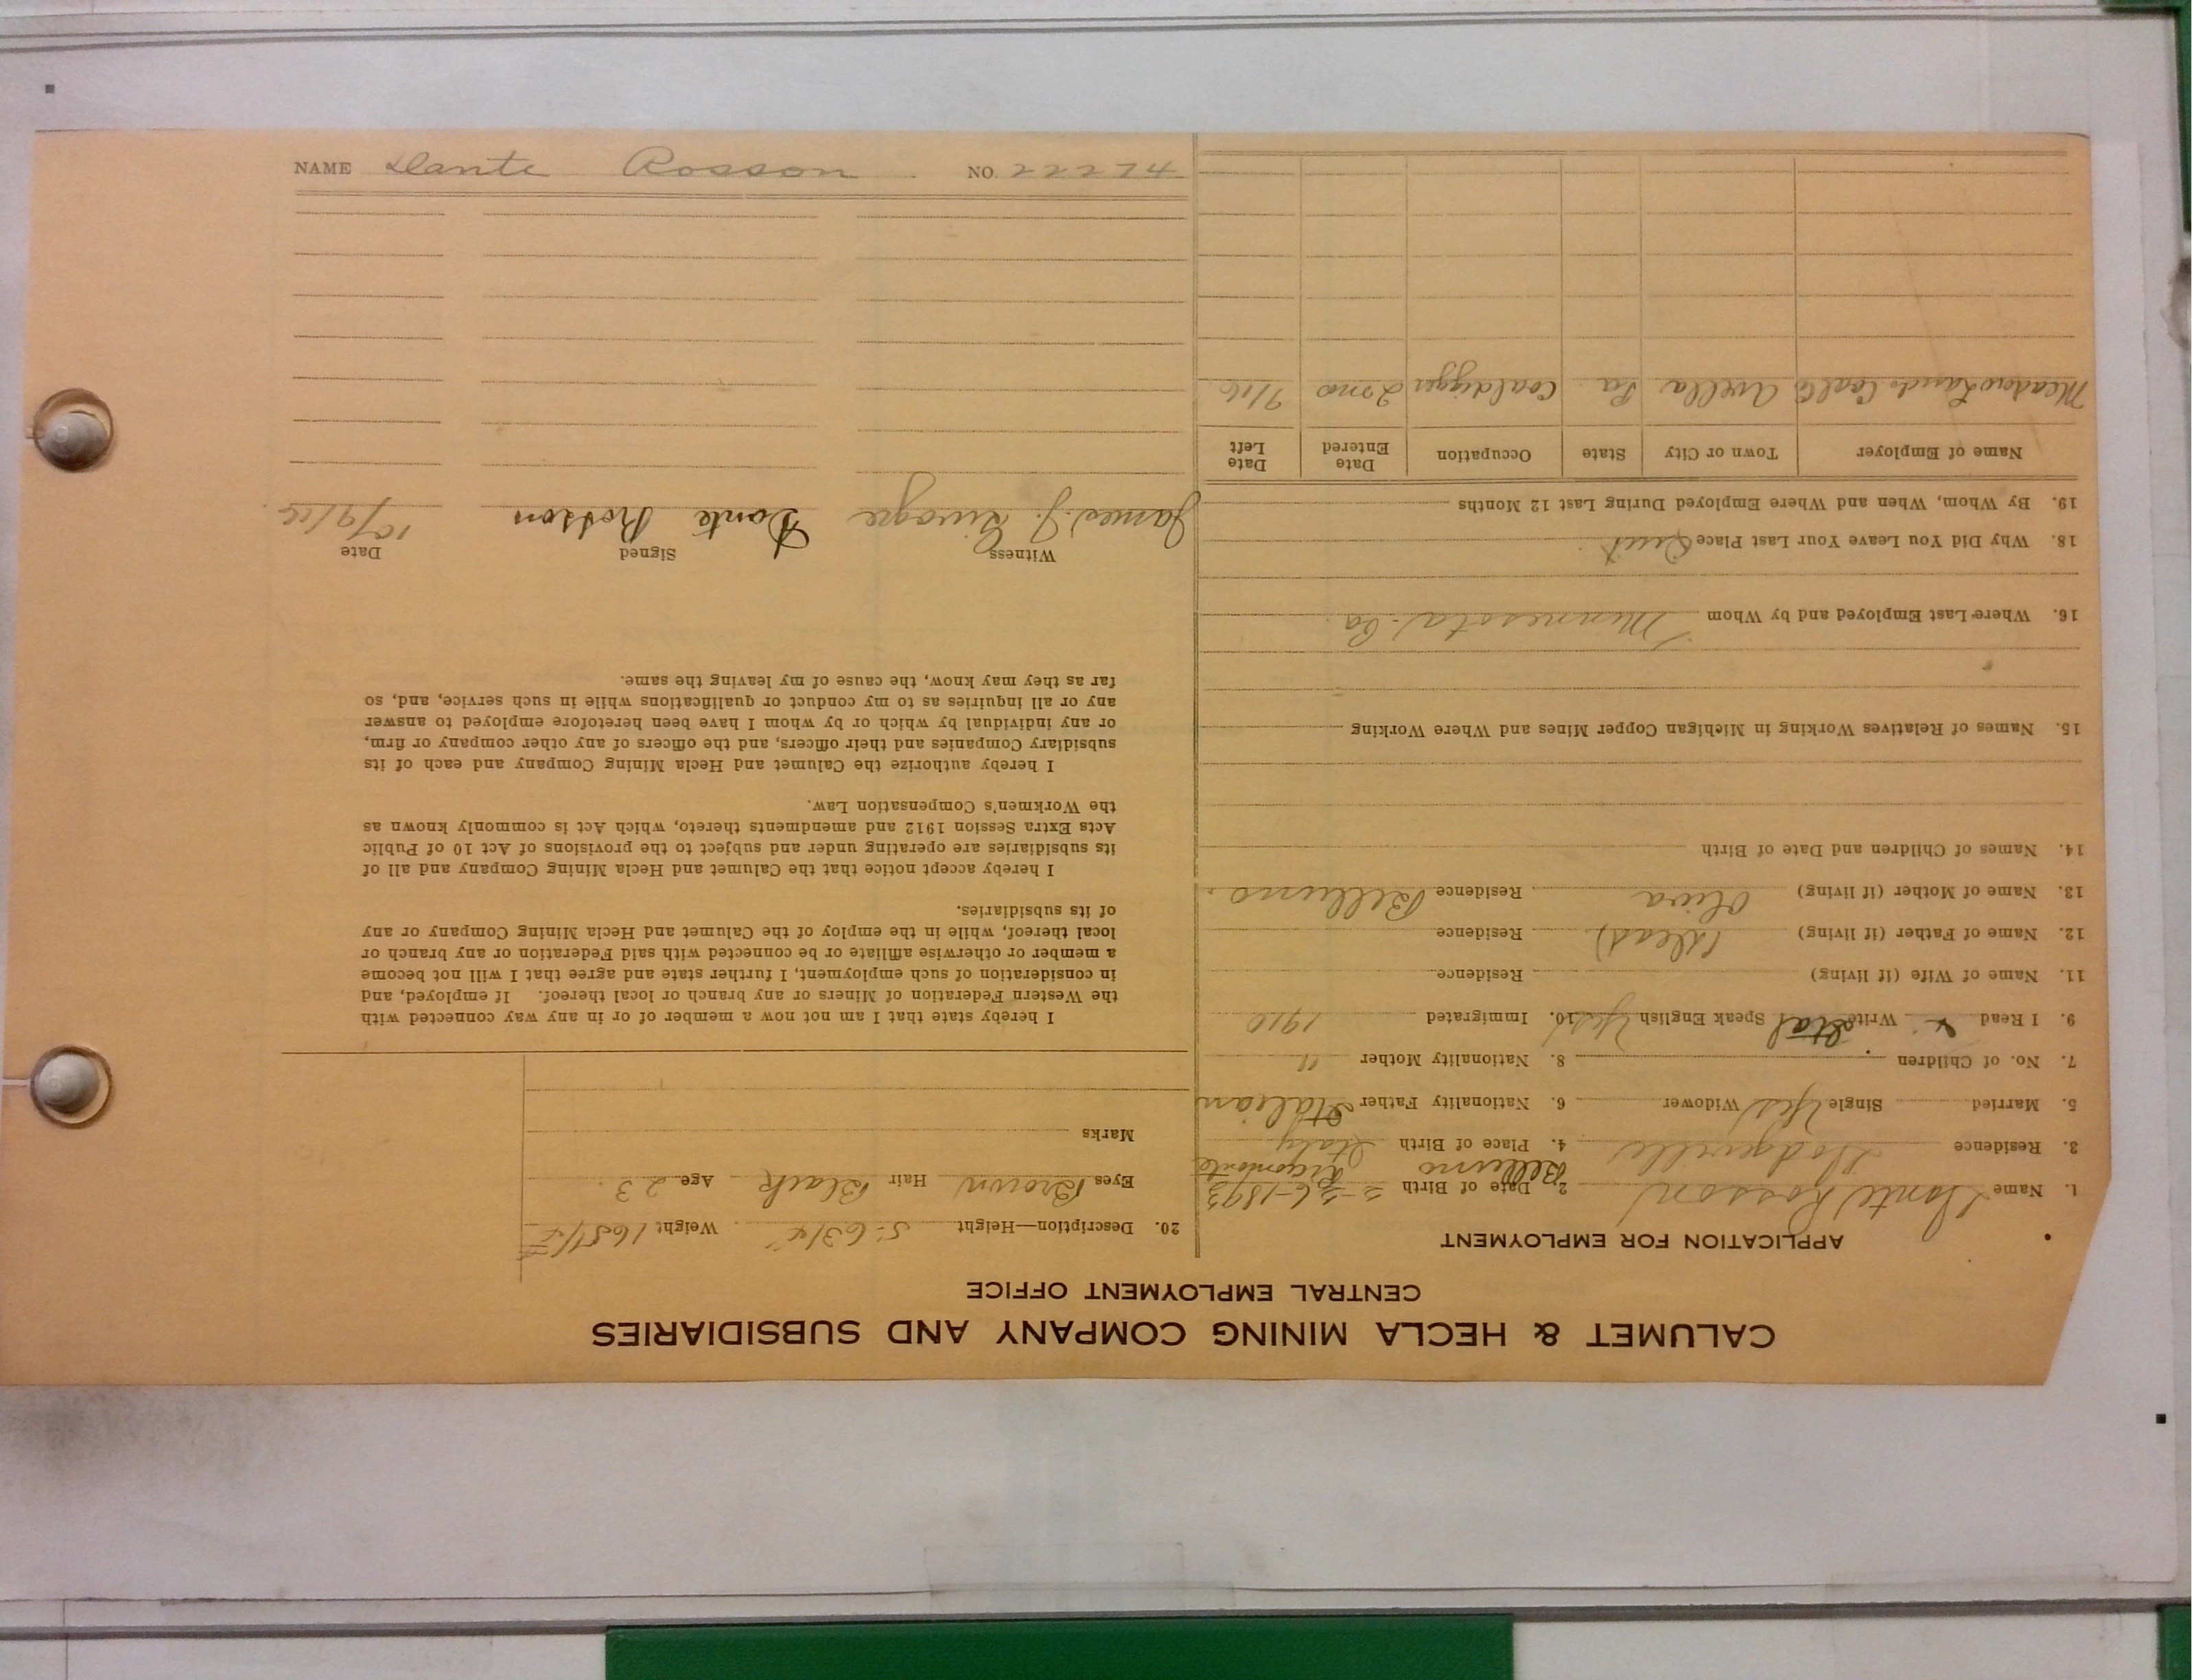 CALUMET & HECLA MINING COMPANY AND SUBSIDIARIES
CENTRAL EMPLOYMENT OFFICE
APPLICATION FOR EMPLOYMENT
1. Name Dante Rosson 2. Date of Birth 1893
Belluno
3. Residence 4. Place of Birth Italy
5. Married Single Yes Widower 6. Nationality Father Italian
7. No. of Children 8. Nationality Mother "
9. I Read Write Ital Speak English Yes 10. Immigrated 1910
11. Name of Wife (if living) Residence
12. Name of Father (if living) (dead) Residence
13. Name of Mother (if living) Oliva Residence Belluno.
14. Names of Children and Date of Birth
15. Names of Relatives Working in Michigan Copper Mines and Where Working
16. Where Last Employed and by Whom Minnesota. Co.
18. Why Did You Leave Your Last Place Quit
19. By Whom, When and Where Employed During Last 12 Months
Name of Employer Town or City State Occupation Date Entered Date Left
Meadow Lands Coal Co Avella Pa. Coaldigger 2 mo 9/16
20. Description—Height 5'-6 3/4" Weight
Eyes Brown Hair Black Age 23.
Marks
I hereby state that I am not now a member of or in any way connected with
the Western Federation of Miners or any branch or local thereof. If employed, and
in consideration of such employment, I further state and agree that I will not become
a member or otherwise affiliate or be connected with said Federation or any branch or
local thereof, while in the employ of the Calumet and Hecla Mining Company or any
of its subsidiaries.
I hereby accept notice that the Calumet and Hecla Mining Company and all of
its subsidiaries are operating under and subject to the provisions of Act 10 of Public
Acts Extra Session 1912 and amendments thereto, which Act is commonly known as
the Workmen's Compensation Law.
I hereby authorize the Calumet and Hecla Mining Company and each of its
subsidiary Companies and their officers, and the officers of any other company or firm,
or any individual by which or by whom I have been heretofore employed to answer
any or all inquiries as to my conduct or qualifications while in such service, and, so
far as they may know, the cause of my leaving the same.
Witness Signed Date
James J. Dante Rosson 10/9/16.
NAME Dante Rosson NO. 22274